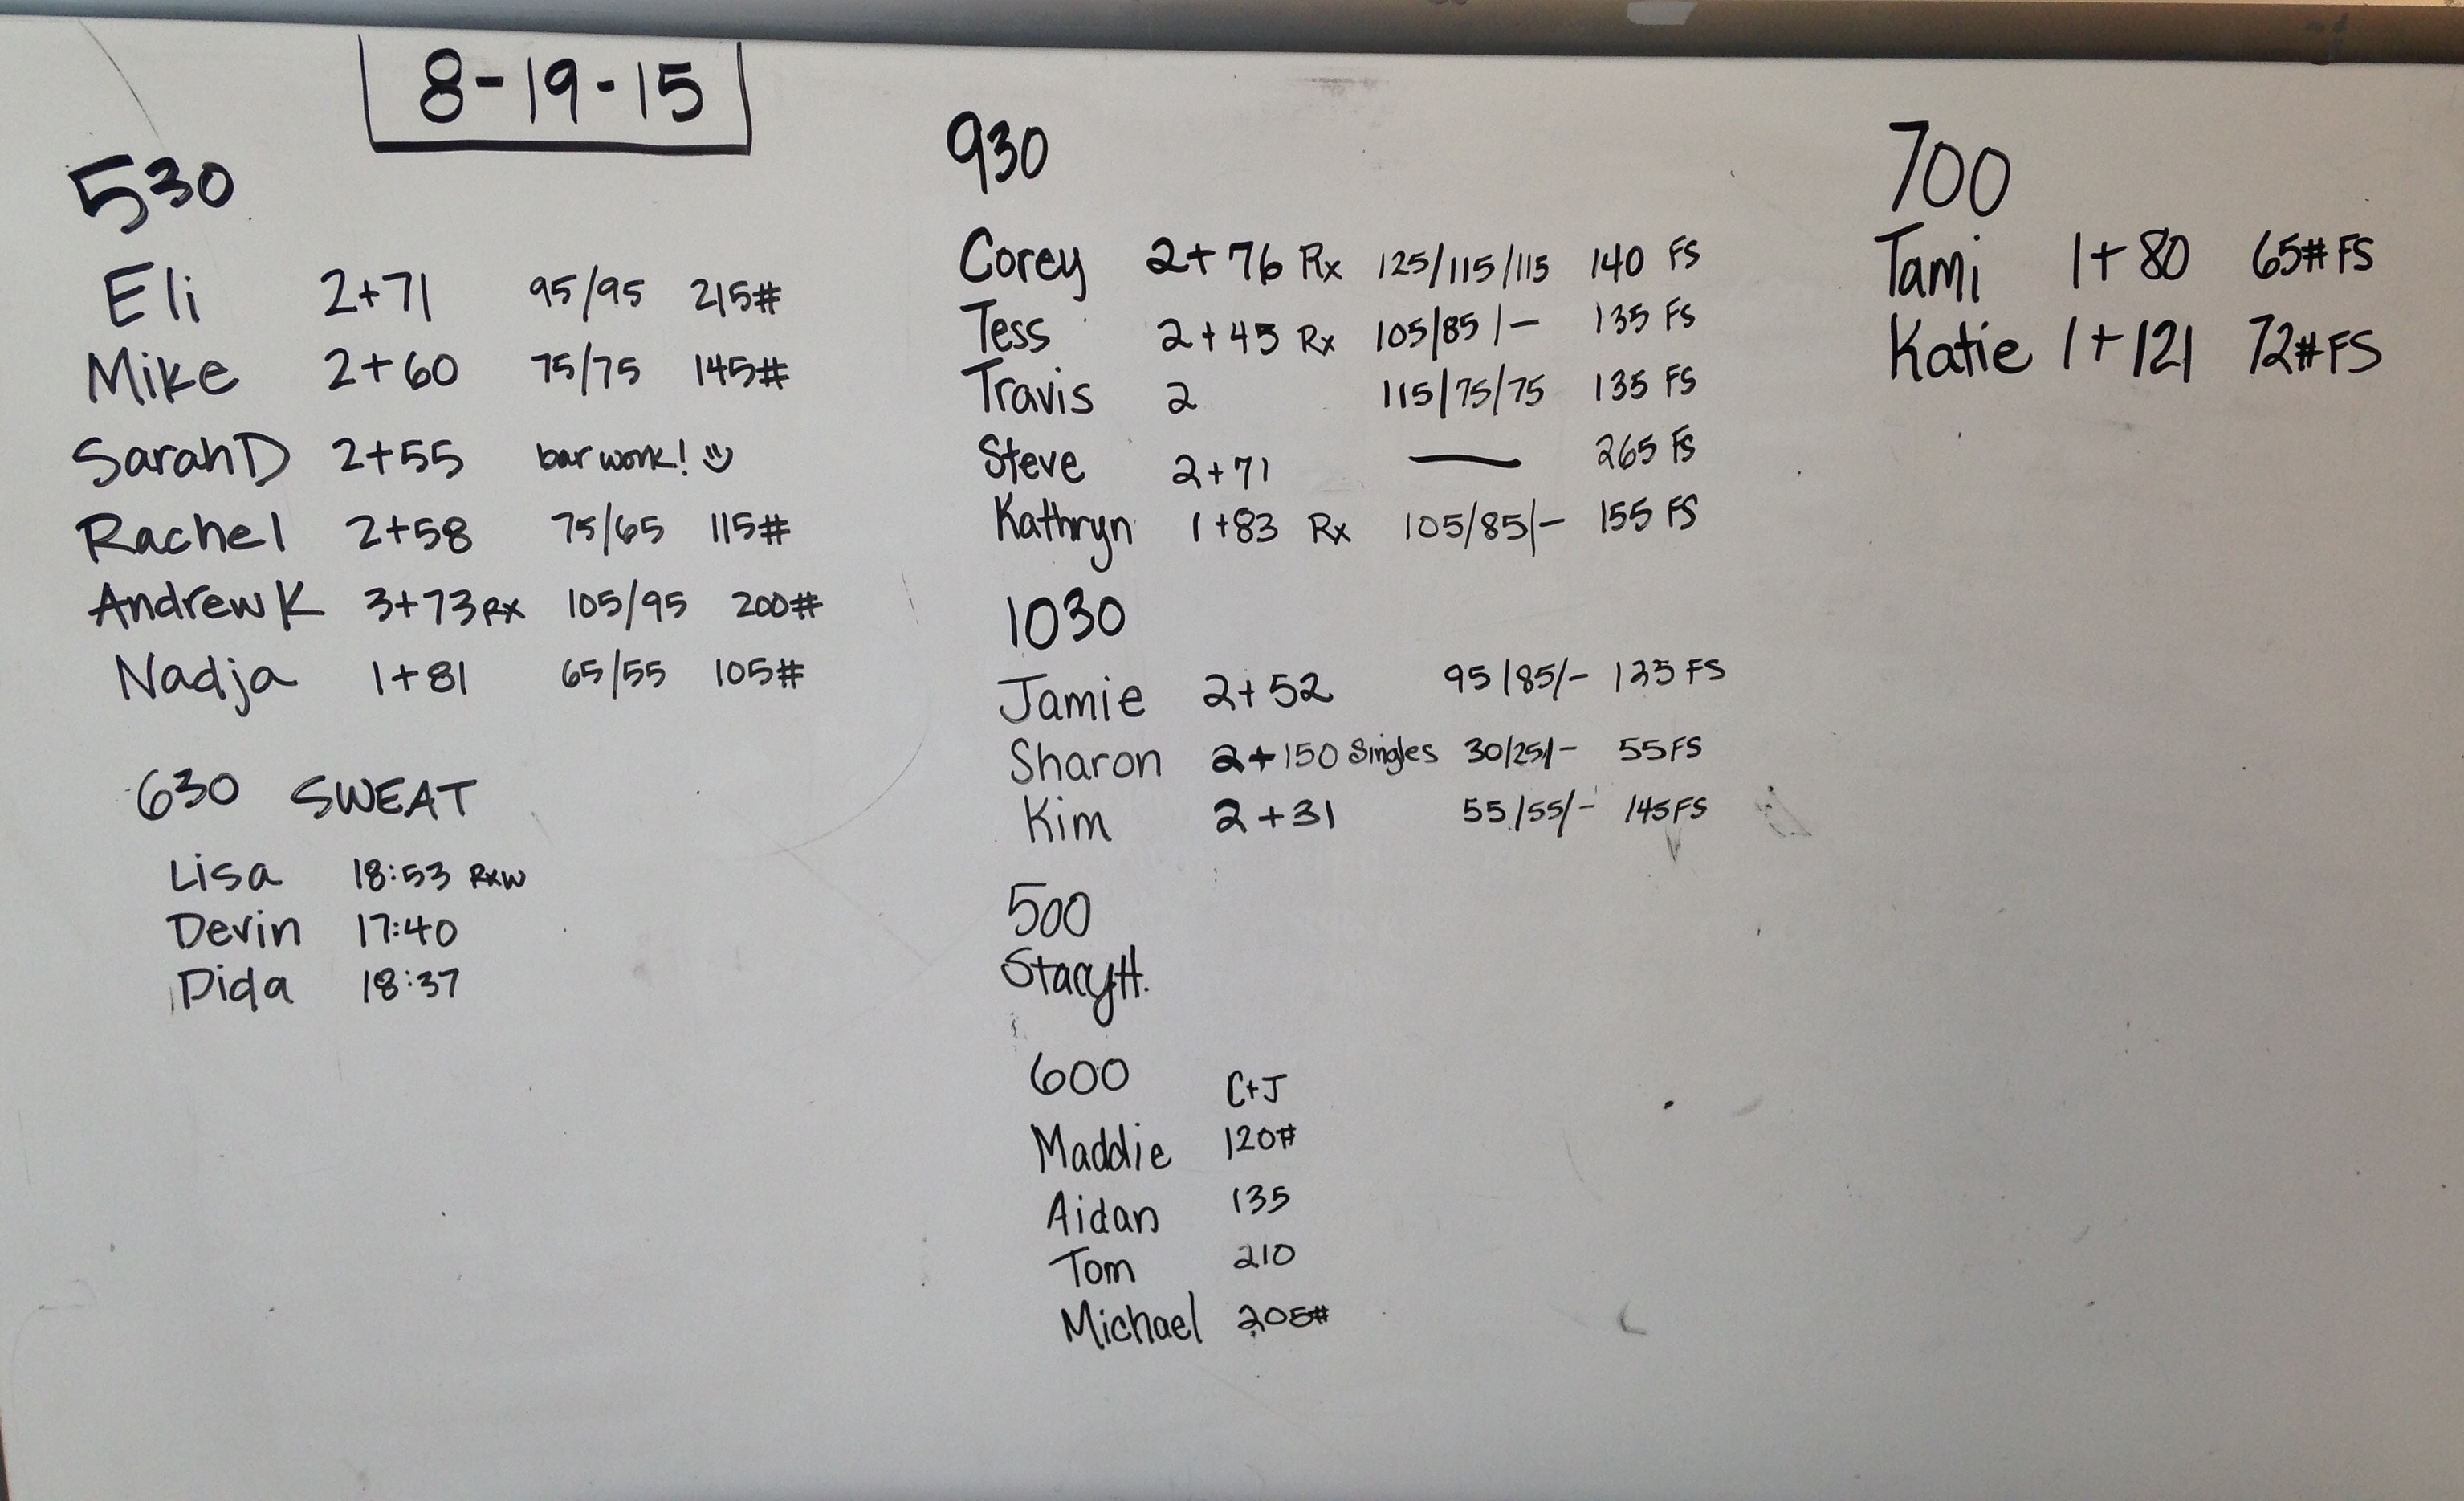 8-19-15
530
Eli 2+71 95/95 215#
Mike 2+60 75/75 145#
Sarah D 2+55 bar work!
Rachel 2+58 75/65 115#
Andrew K 3+73 RX 105/95 200#
Nadja 1+81 65/55 105#
630 SWEAT
Lisa 18:53 RXW
Devin 17:40
Dida 18:37
930
Corey 2+76 Rx 125/115/115 140 FS
Tess 2+45 Rx 105/85/- 135 FS
Travis 2 115/75/75 135 FS
Steve 2+71 — 265 FS
Kathryn 1+83 Rx 105/85/- 155 FS
1030
Jamie 2+52 95/85/- 135 FS
Sharon 2+150 Singles 30/25/- 55 FS
Kim 2+31 55/55/- 145 FS
500
Stacy H.
600 C+J
Maddie 120#
Aidan 135
Tom 210
Michael 205#
700
Tami 1+80 65# FS
Katie 1+121 72# FS